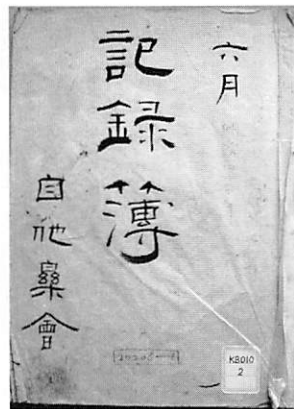 六月
記録簿
自他會
KB010
2